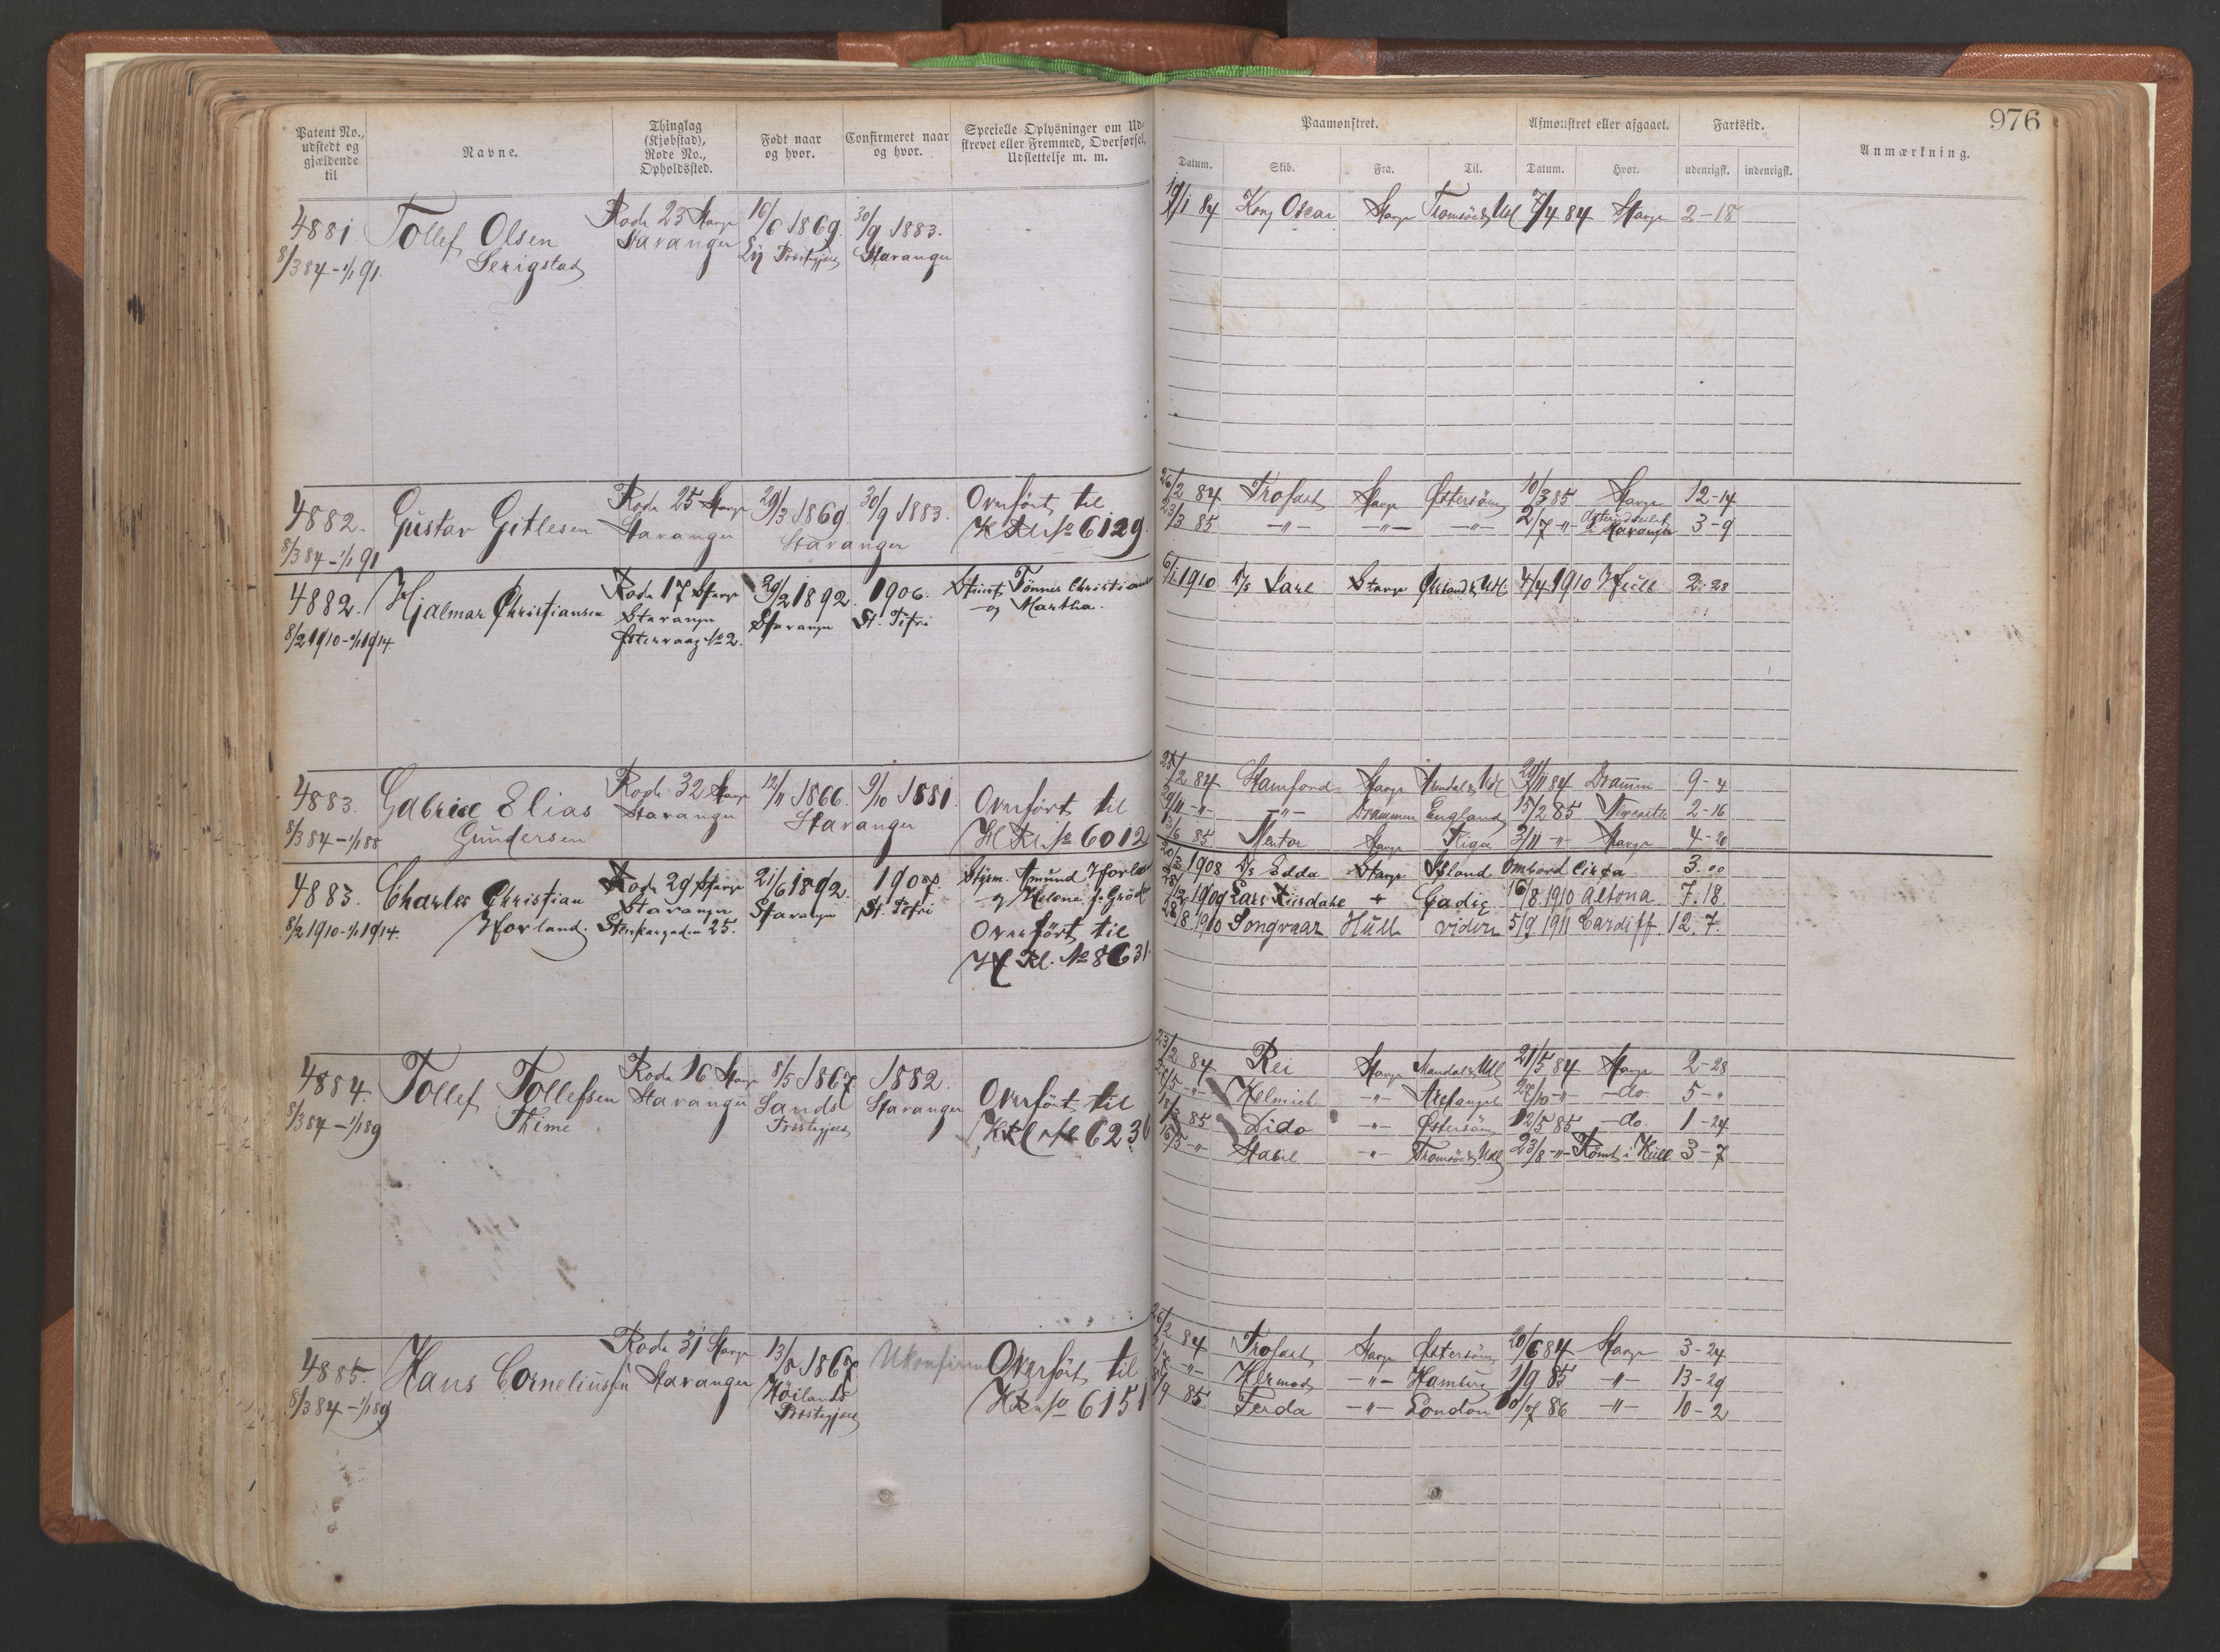 976
Patent No., udstedt og gjældende til
Navne.
Thinglag (Kjøbstad), Rode No., Opholdssted.
Født naar og hvor.
Confirmeret naar og hvor.
Specielle Oplysninger om Udstrevet eller Fremmed, Overførsel, Udslettelse m. m.
Paamønstret.
Afmønstret eller afgaaet.
Fartstid.
Anmærkning.
Datum. Skib. Fra. Til. Datum. Hvor. udenrigsk. indenrigsk.
4881 Tollef Olsen Rode 23 Stavgr 16/6 1869. 30/9 1883.
Serigstad Stavanger Ly Præstegjæld Stavanger
8/3 84 - 1/1 91.
84 Kong Oscar Stavgr Tromsö & Udl 7/4 84 Stavgr 2-18
4882. Gustav Gitlesen Rode 25 Stavgr 29/3 1869. 30/9 1883. Overfört til
Stavanger Stavanger No 6129.
8/3 84 - 1/1 91
26/2 84 Trofast Stavgr Östersöen 10/3 85 Stavgr 12-14
23/3 85 -"- -"- -"- 2/7 -"- Stavanger 3-9
4882. Hjalmar Christiansen Rode 17 Stavgr 29/2 1892. 1906. Tönnes Christian
Stavanger Stavanger St. Petri og Martha.
8/2 1910 - 1/1 1914 Östervaag No 2.
6/1 1910 D/s Jarl Stavgr & Udl. 4/4 1910 Hull 2. 28
4883. Gabriel Elias Rode 32 Stavgr 12/11 1866. 9/10 1881. Overfört til
Gundersen Stavanger Stavanger No 6012
8/3 84 - 1/1 88
25/2 84 Stamford Stavgr & Udl 29/11 84 Drammen 9-4
29/11 -"- -"- Drammen England 15/2 85 2-16
13/6 85 Mentor Stavgr Riga 3/11 -"- Stavgr 4-20
4883. Charles Christian Rode 29 Stavgr 21/6 1892. 1907. Styrm. Amund Hovland
Hovland. Stavanger Stavanger St. Petri og Helene f. Gröd
8/2 1910 - 1/1 1914. 25. Overfört til
No 8631.
1908 D/s Edda Stavgr Island Ombord Cirka 3.00
1909 Lars " Cadiz 16/8 1910 Altona 7. 18.
28/8 1910 Songvaar Hull videre 5/9 1911 Cardiff. 12. 7.
4884. Tollef Tollefsen Rode 16 Stavgr 8/5 1867. 1882. Overfört til
Thime Stavanger Sands Præstegjæld Stavanger 6236
8/3 84 - 1/1 89
23/2 84 Rei Stavgr Mandal & Udl 21/5 84 Stavgr 2-28
Helmich -"- Archangel -"- -do. 5-"
85 Dido -"- Östersöen 12/5 85 -do. 1-24
16/5 -"- Stabil -"- Tromsö & Udl 23/8 -"- Römt i Hull 3-7
4885. Hans Corneliussen Rode 31 Stavgr 13/8 1867 Ukonfirm Overfört til
Stavanger Höilands Præstegjæld No 6151
8/3 84 - 1/1 89
26/2 84 Trofast Stavgr Östersöen 20/6 84 Stavgr 3-24
Hermod -"- Hamburg 1/9 85 -"- 13-29
85. Ferda -"- London 86 -"- 10-2